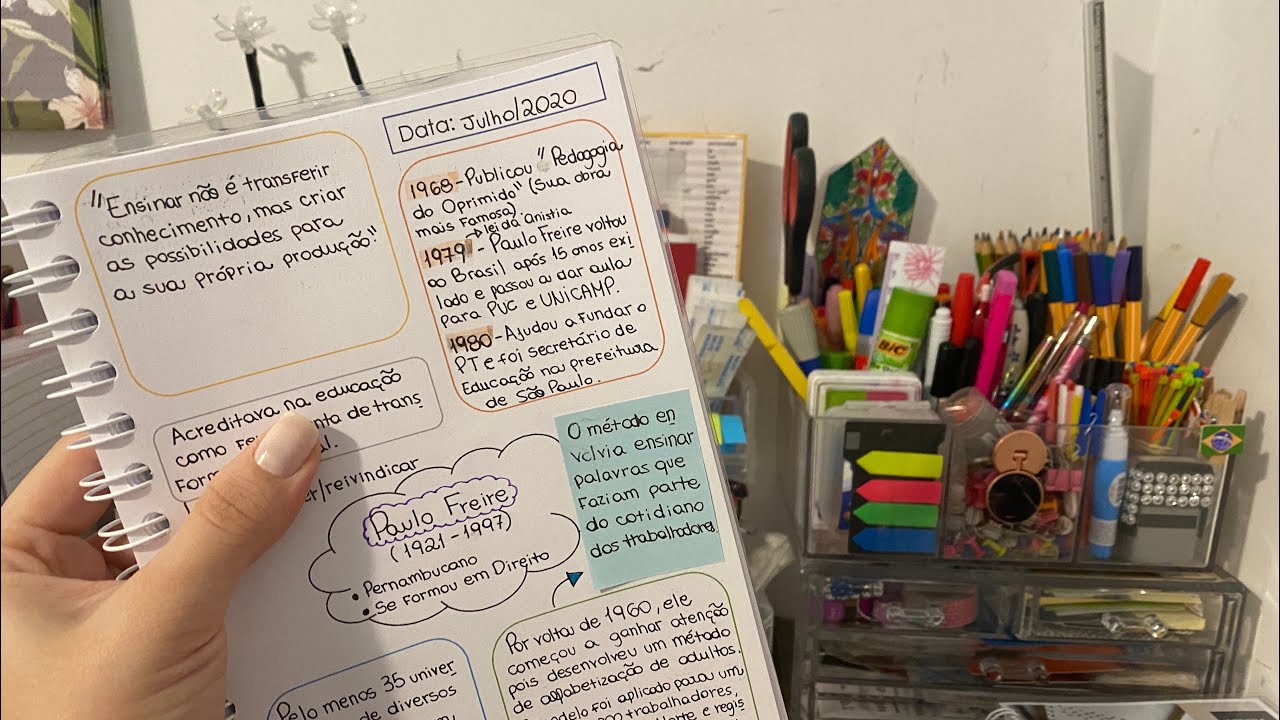 Data: Julho/2020
"Ensinar não é transferir
conhecimento, mas criar
as possibilidades para
a sua própria produção!"
1968 - Publicou "Pedagogia
do Oprimido" (Sua obra
mais famosa)
Lei da Anistia
1979 - Paulo Freire voltou
ao Brasil após 15 anos exi
lado e passou a dar aula
para PUC e UNICAMP.
1980 - Ajudou a fundar o
PT e foi secretário de
Educação na prefeitura
de São Paulo.
Acreditava na educação
como de trans
/reivindicar
Paulo Freire
(1921 - 1997)
• Pernambucano
• Se formou em Direito
O método en
volvia ensinar
palavras que
faziam parte
do cotidiano
dos trabalhadores.
Pelo menos 35 univer
de diversos
Por volta de 1960, ele
começou a ganhar atenção
pois desenvolveu um método
de alfabetização de adultos.
modelo foi aplicado para um
trabalhadores,
e regis
BIC